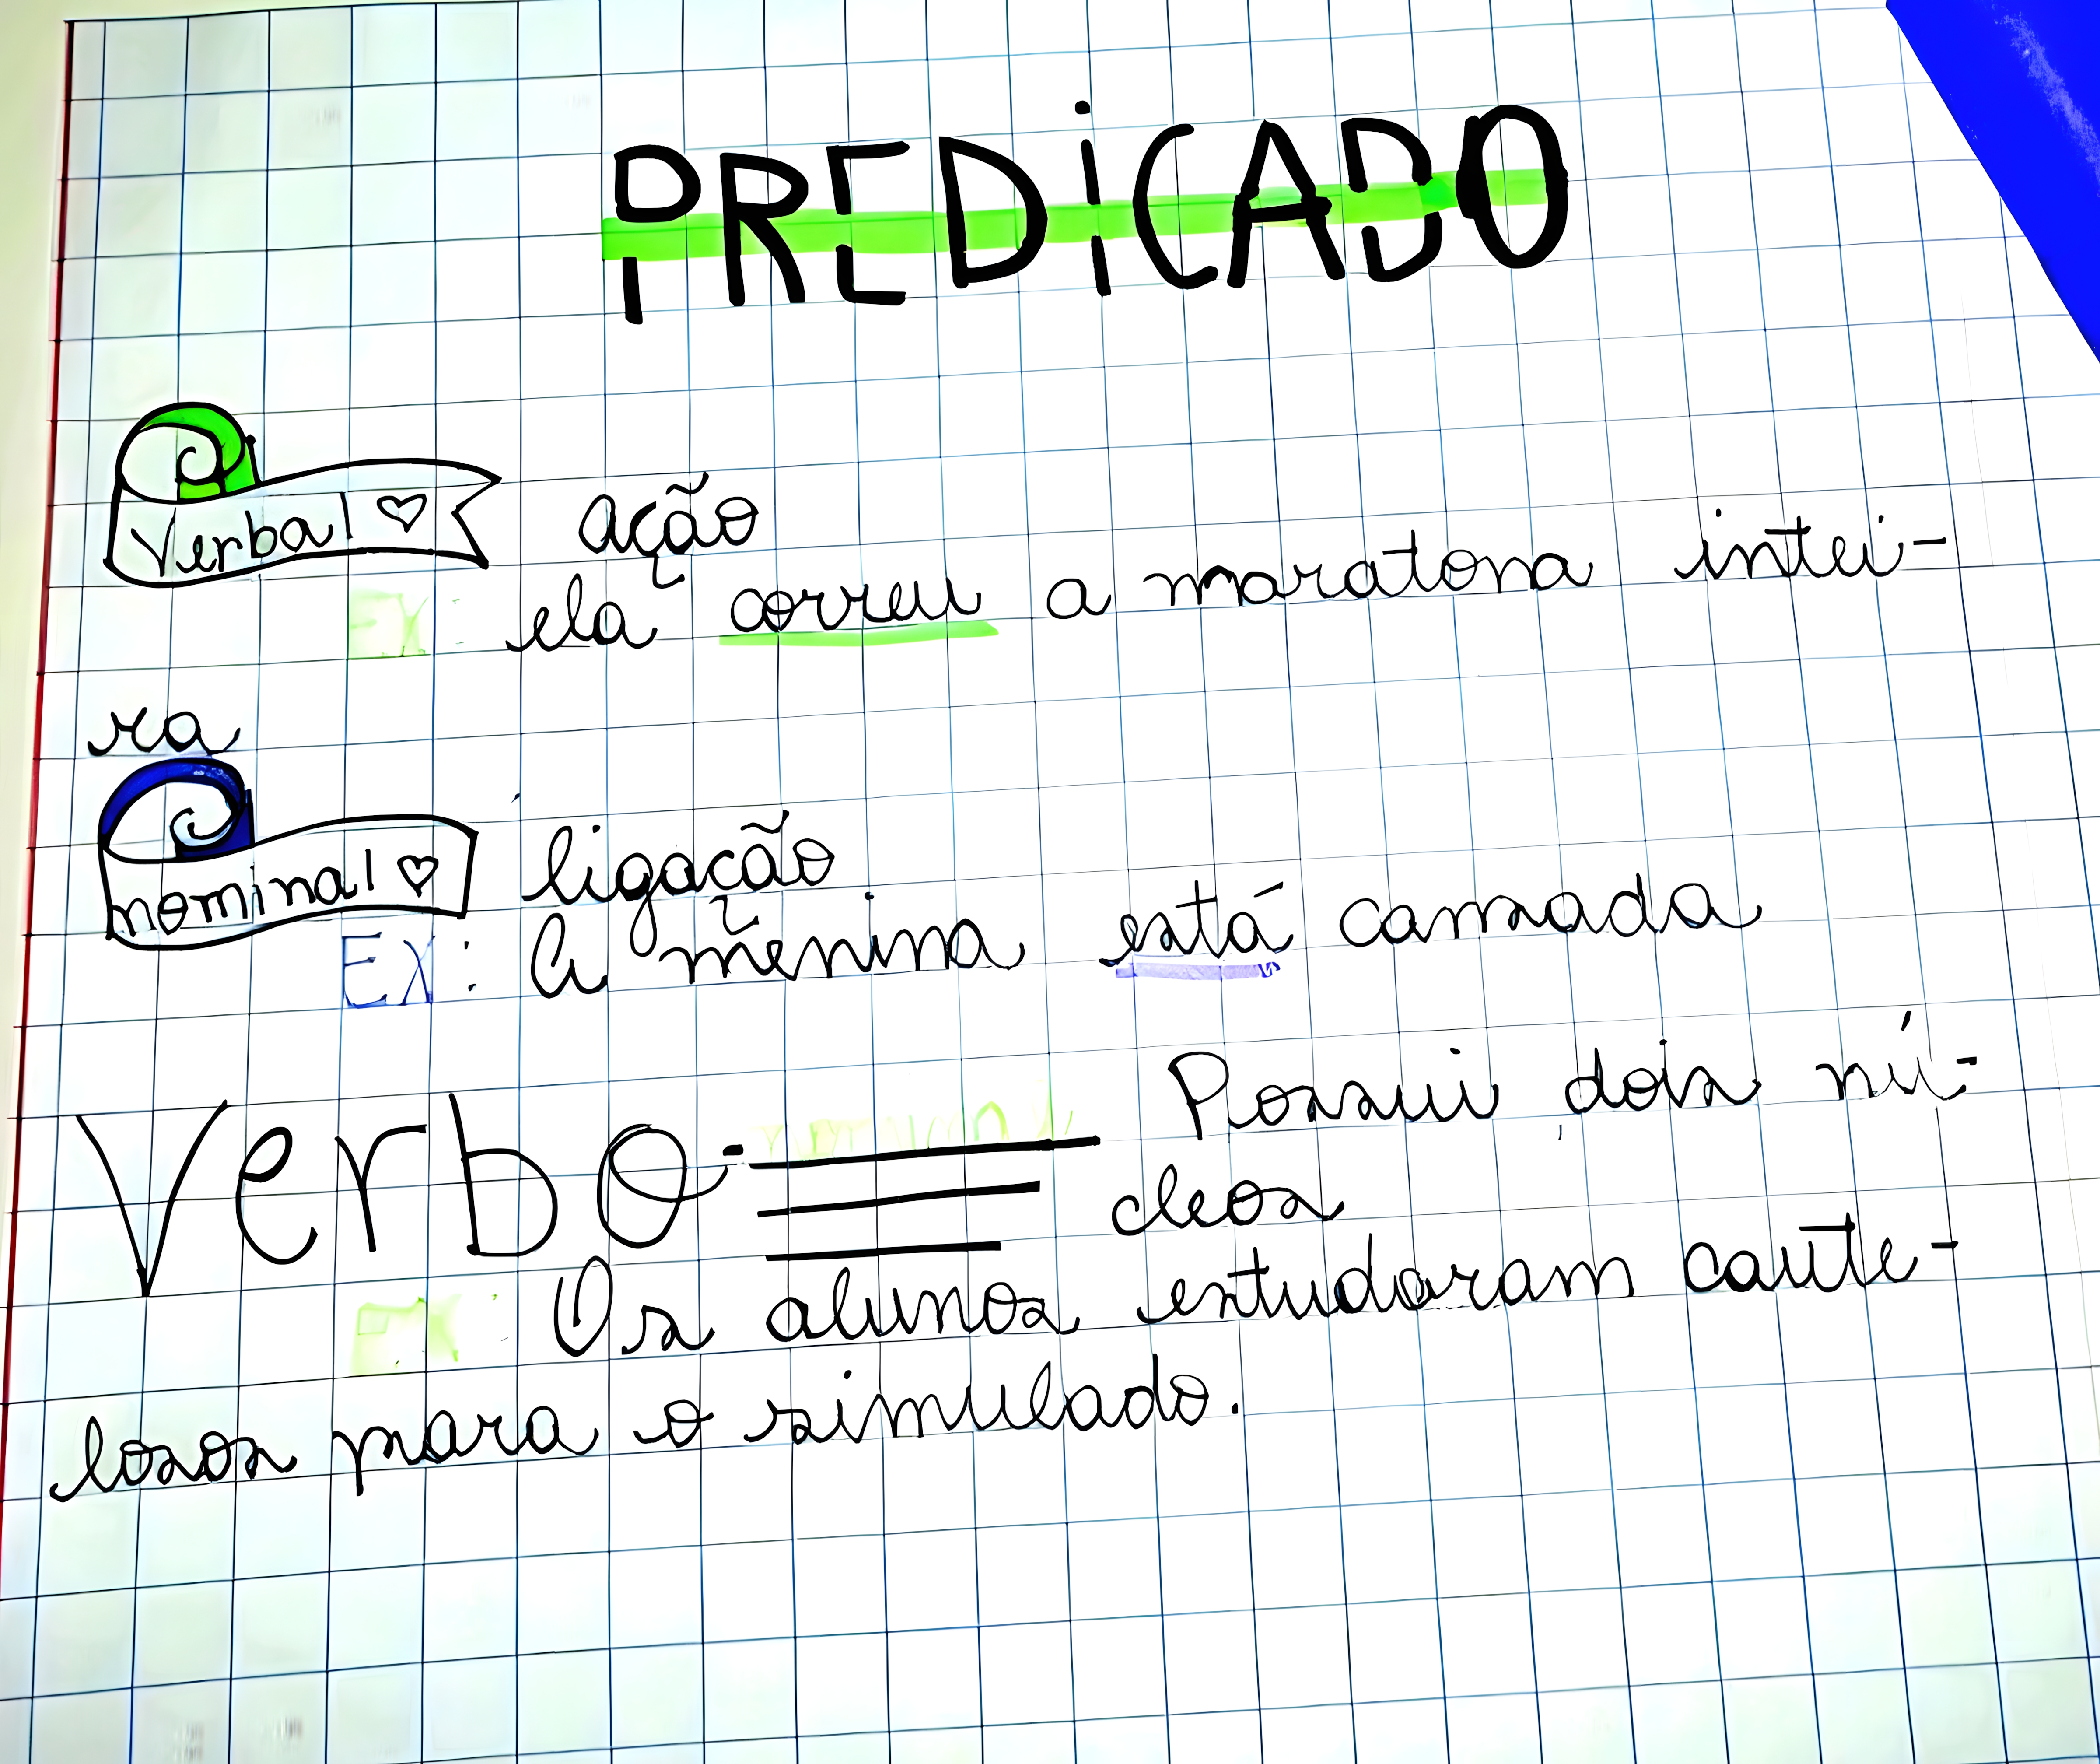 PREDiCADO
Verbal ação
EX: ela correu a maratona intei-
ra
nominal ligação
EX: A menina está cansada
Verbo-nominal Possui dois nú-
cleos
EX: Os alunos estudaram caute-
losos para o simulado.